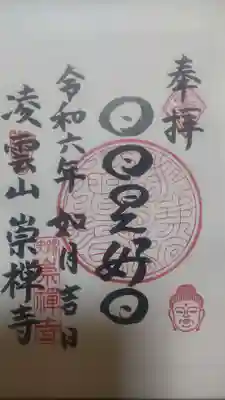 奉拝
日日是好日
令和六年 如月吉日
凌雲山 崇禅寺